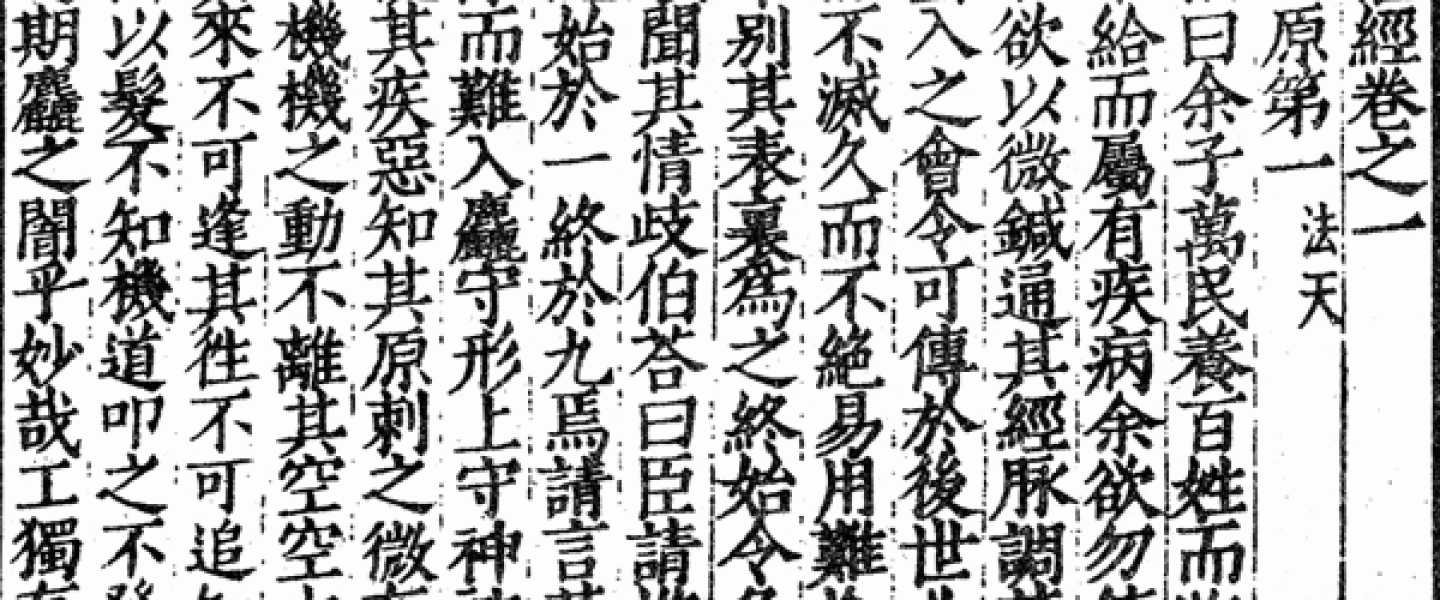 經卷之一
原第一 法天
曰余子萬民養百姓而
給而屬有疾病余欲勿
欲以微鍼通其經脉調
入之會令可傳於後世
不滅久而不絶易用難
别其表裏爲之終始令
聞其情歧伯荅曰臣請
始於一終於九焉請言
而難入麤守形上守神
其疾惡知其原刺之微
機機之動不離其空空
來不可逢其徃不可追
以髮不知機道叩之不
期麤之闇乎妙哉工獨